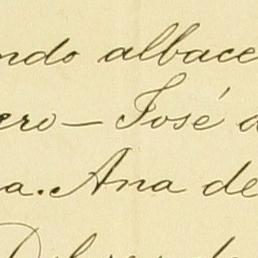 ndo albace
ero — José d
a. Ana de